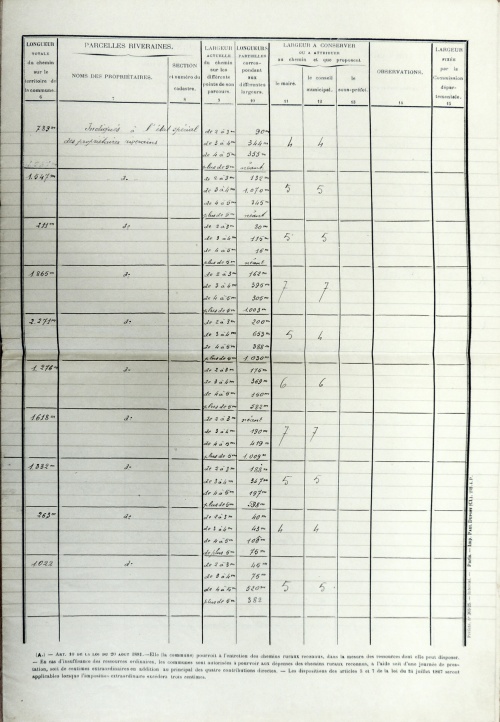 LONGUEUR
TOTALE
du chemin
sur le
territoire de
la commune.
6
PARCELLES RIVERAINES.
NOMS DES PROPRIÉTAIRES.
7
SECTION
et numéro du
cadastre.
8
LARGEUR
ACTUELLE
du chemin
sur les
différents
points de son
parcours.
9
LONGUEURS
PARTIELLES
corres-
pondant
aux
différentes
largeurs.
10
LARGEUR A CONSERVER
OU A ATTRIBUER
au chemin et que proposent
le maire.
11
le conseil
municipal.
12
le
sous-préfet.
13
OBSERVATIONS.
14
LARGEUR
fixée
par la
Commission
dépar-
tementale.
15
739m Indiqués à l'état spécial de 2 à 3m 90m
des propriétaires riverains de 3 à 4m 344m 4 4
de 4 à 5m 355m
plus de 5m néant
1.547m do de 2 à 3m 132m
de 3 à 4m 1.070m 5 5
de 4 à 5m 345m
plus de 5m néant
211m do de 2 à 3m
de 3 à 4m 5 5
de 4 à 5m 16m
plus de 5m néant
1.866m do de 2 à 3m 162m
de 3 à 4m 396m 7 7
de 4 à 5m 305m
plus de 5m 1.003m
2.271m do de 2 à 3m 200m
de 3 à 4m 653m 5 4
de 4 à 5m 388m
plus de 5m 1.030m
1.276m do de 2 à 3m
de 3 à 4m 369m 6 6
de 4 à 5m
plus de 5m 582m
1618m do de 2 à 3m néant
de 3 à 4m 190m 7 7
de 4 à 5m 419m
plus de 5m 1.009m
1.332m do de 2 à 3m
de 3 à 4m 5 5
de 4 à 5m 197m
plus de 5m 598m
263m do de 2 à 3m 40m
de 3 à 4m 43m 4 4
de 4 à 5m 105m
de plus 5m 75m
1022 do de 2 à 3m 45m
de 3 à 4m 75m
de 4 à 5m 520m 5 5
plus de 5m 382
(A.) — ART. 10 DE LA LOI DU 20 AOUT 1881. — Elle (la commune) pourvoit à l'exécution des chemins ruraux reconnus, dans la mesure des ressources dont elle peut disposer.
— En cas d'insuffisance des ressources ordinaires, les communes sont autorisées à pourvoir aux dépenses des chemins ruraux reconnus, à l'aide soit d'une journée de pres-
tation, soit de centimes extraordinaires en addition au principal des quatre contributions directes. — Les dispositions des articles 5 et 7 de la loi du 24 juillet 1867 seront
applicables lorsque l'imposition extraordinaire excédera trois centimes.